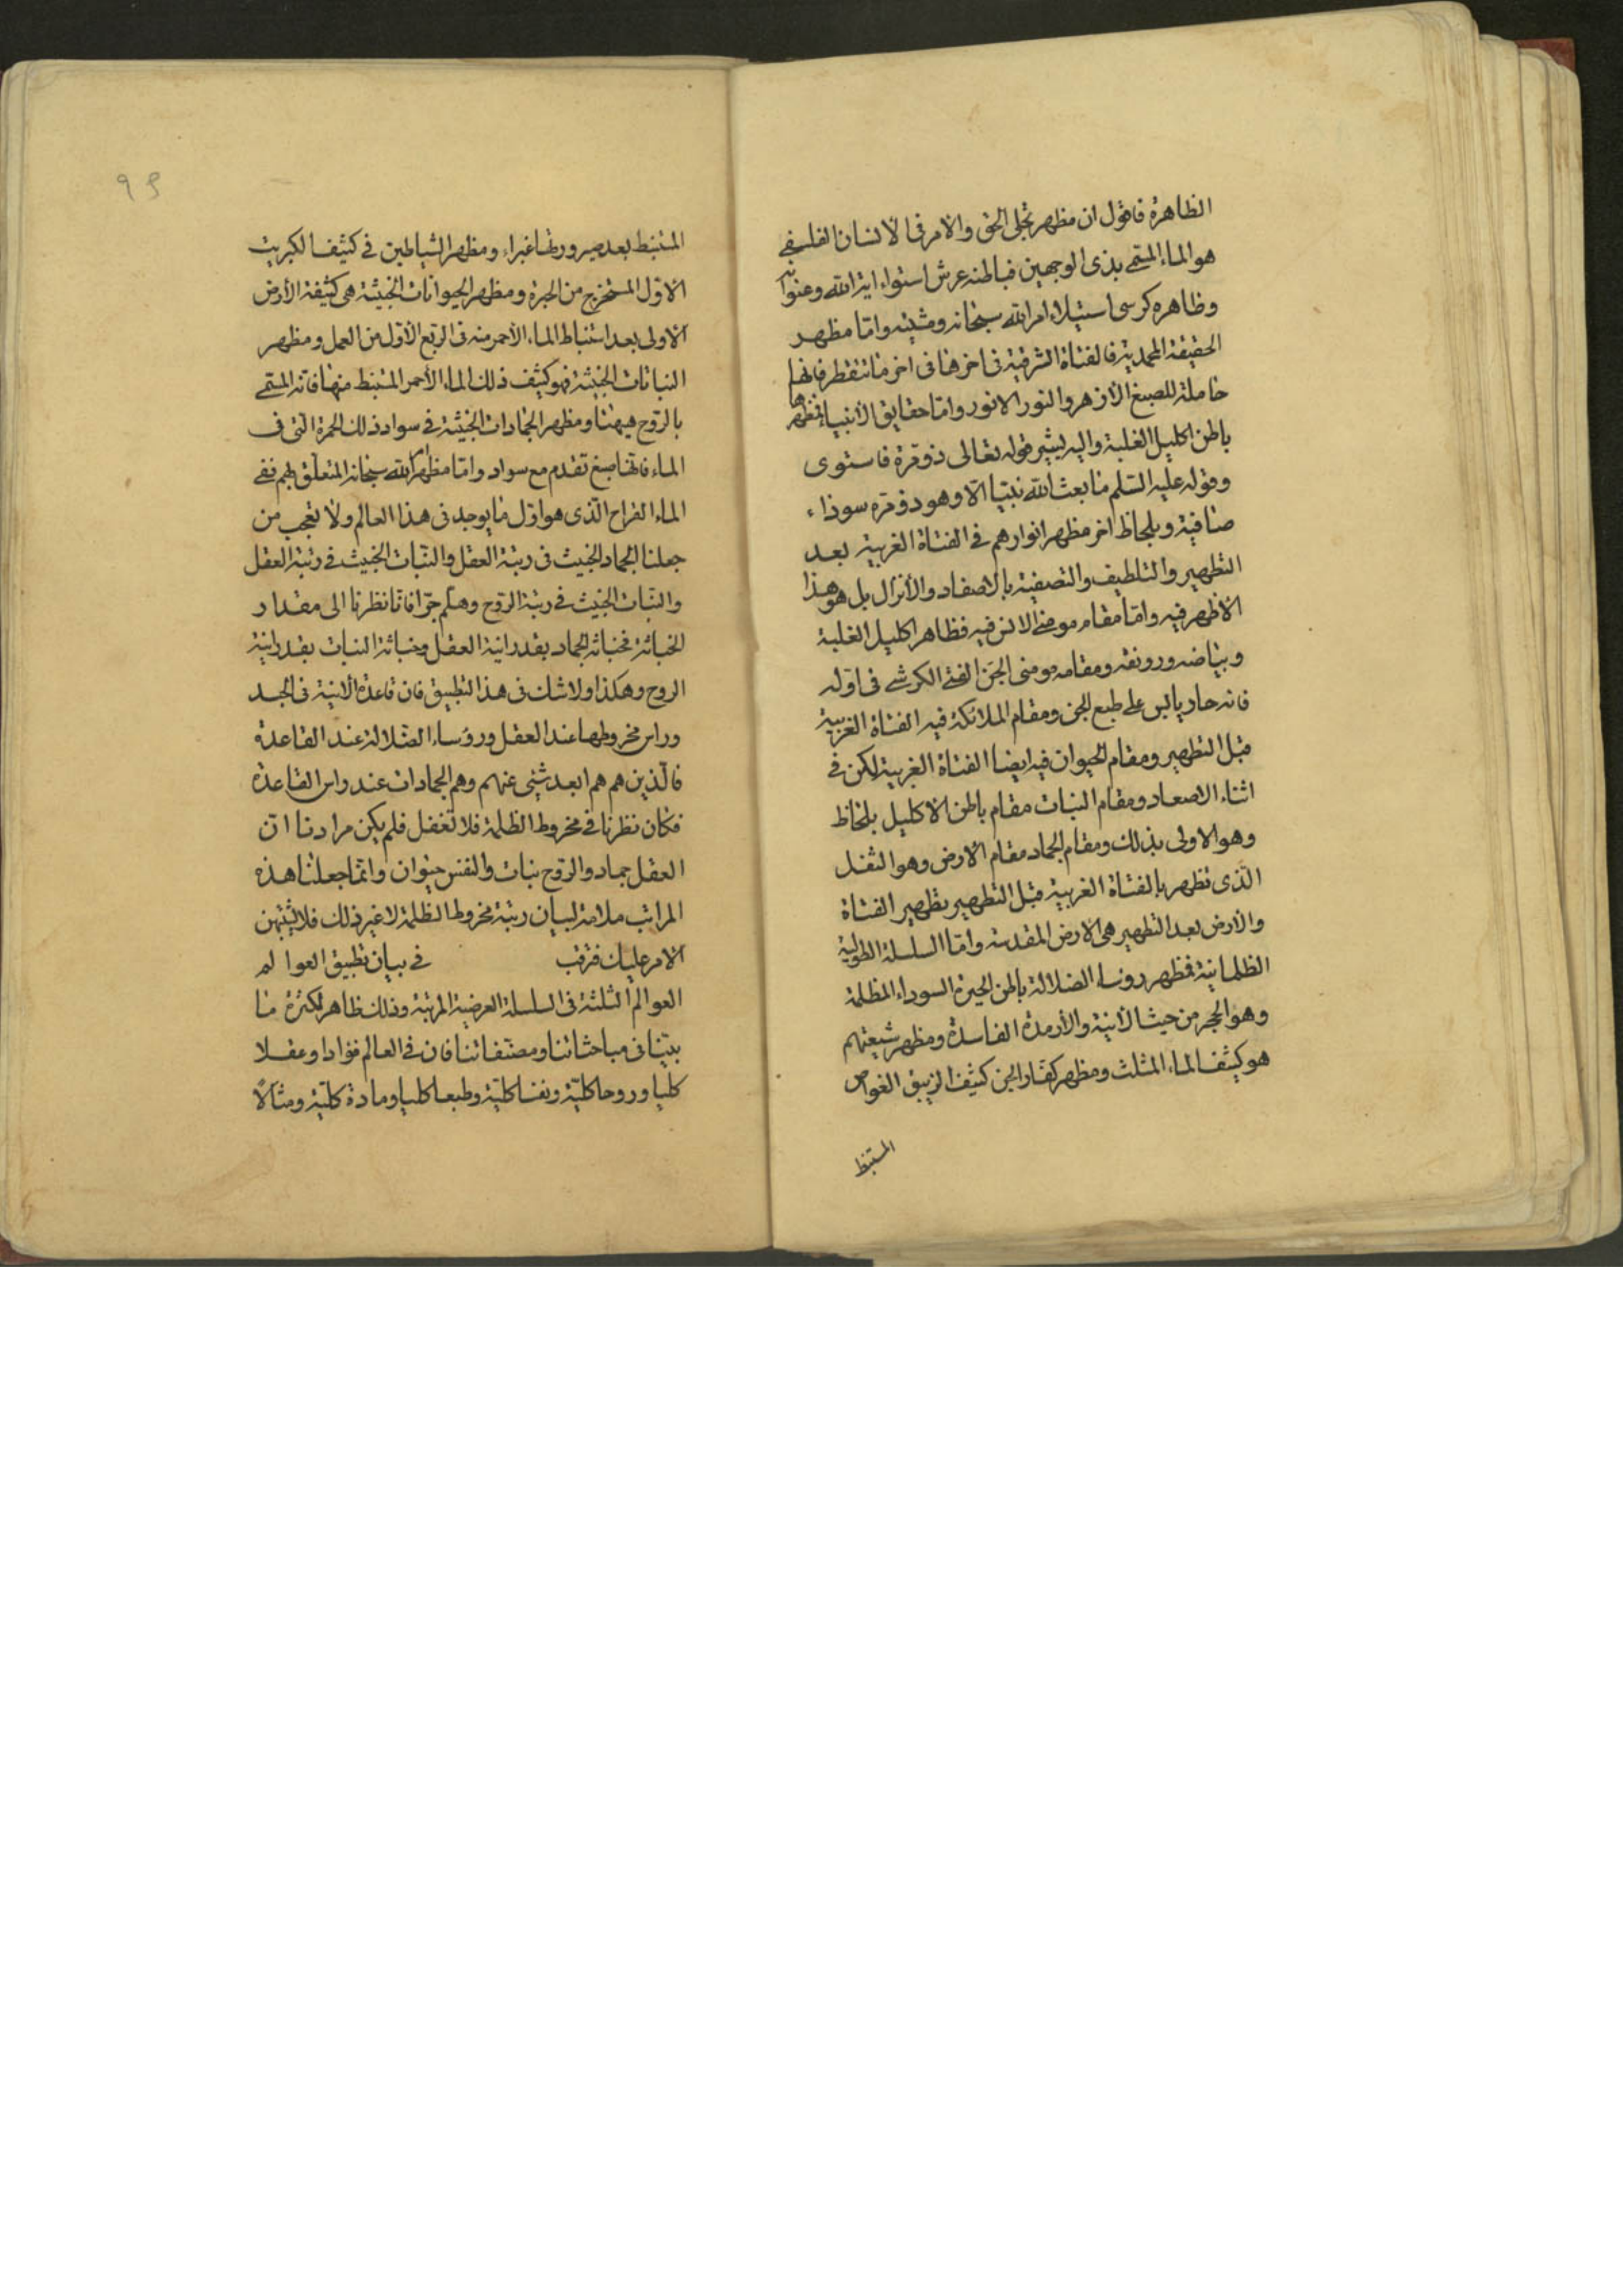 الظاهرة فاقول ان مظهر تجلى الحق والامر فى الانسان الفلسفي
هو الماء المسمى بذى الوجهين فباطنه عرش استواء اية الله وعنوانه
وظاهره كرسى استيلاء امر الله سبحانه ومشيته واما مظهر
الحقيقة المحمدية فالفتاة الشرقية فى اخرها فى اخر ما تتقطر فانها
حاملة للصبغ الازهر والنور الانور واما حقايق الأنبياء فمظهرها
باطن اكليل الغلبة واليه يشير قوله تعالى ذو مرة فاستوى
وقوله عليه السلم ما بعث الله نبيا الا وهو ذو مرة سوداء
صافية وبلحاظ اخر مظهر انوارهم فى الفتاة الغربية بعد
التطهير والتلطيف والتصفية بالاصعاد والأنزال بل هو هذا
الاظهر فيه واما مقام مومنى الانس فيه فظاهر اكليل الغلبة
وبياضه ورونقه ومقامه مومنى الجن الفتى الكرشى فى اوله
فانه حار يابس على طبع الجن ومقام الملائكة فيه الفتاة الغربية
قبل التطهير ومقام الحيوان فيه ايضا الفتاة الغربية لكن فى
اثناء الاصعاد ومقام النبات مقام باطن الاكليل بلحاظ
وهو الاولى بذلك ومقام الجماد مقام الارض وهو الثفل
الذى تظهر بالفتاة الغربية قبل التطهير بتطهير الفتاة
والأرض بعد التطهير هى الارض المقدسة واما السلسلة الطولية
الظلمانية فمظهر روساء الضلالة باطن الحيرة السوداء المظلمة
وهو الحجر من حيث الأنية والأرمدة الفاسدة ومظهر شيعتهم
هو كثيف الماء المثلث ومظهر كفار الجن كثيف الزيبق الغواص
المستنبط
99
المستنبط بعد صيرورتها غبراء ومظهر الشياطين فى كثيف الكبريت
الأول المستخرج من الحمرة ومظهر الحيوانات الخبيثة هى كثيفة الأرض
الاولى بعد استنباط الماء الأحمر منه فى الربع الأول من العمل ومظهر
النباتات الخبيثة فهو كثيف ذلك الماء الأحمر المستنبط منها فانه المسمى
بالروح هيهنا ومظهر الجمادات الخبيثة فى سواد ذلك الحمرة التى فى
الماء فانها صبغ تقدم مع سواد واما مظهر امر الله سبحانه المتعلق بهم ففى
الماء القراح الذى هو اول ما يوجد فى هذا العالم ولا تعجب من
جعلنا الجماد الخبيث فى رتبة العقل والنبات الخبيث فى رتبة العقل
والنبات الخبيث فى رتبة الروح وهلم جرا فانا نظرنا الى مقدار
الخباثة فخباثة الجماد بقدر انية العقل وخباثة النبات بقدر انية
الروح وهكذا ولا شك فى هذا التطبيق فان قاعدة الانية فى الجسد
وراس مخروطها عند العقل ورؤساء الضلالة عند القاعدة
فالذين هم هم ابعد شئى عنهم وهم الجمادات عند راس القاعدة
فكان نظرنا فى مخروط الظلمة فلا تغفل فلم يكن مرادنا ان
العقل جماد والروح نبات والنفس حيوان وانما جعلنا هذه
المراتب علامة لبيان رتبة مخروط الظلمة لا غير ذلك فلا يشتبهن
الامر عليك فترقب فى بيان تطبيق العوالم
العوالم الثلثة فى السلسلة العرضية المرتبة وذلك ظاهر لكثرة ما
بينا فى مباحثاتنا ومصنفاتنا فان فى العالم فؤادا وعقلا
كليا وروحا كلية ونفسا كلية وطبعا كليا ومادة كلية ومثالا